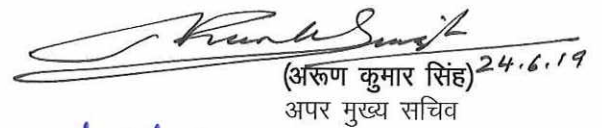 (अरूण कुमार सिंह) 24.6.19
अपर मुख्य सचिव